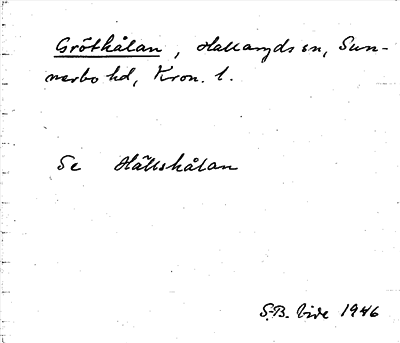 Gröthålan, Hallaryds sn, Sun-
nerbo hd, Kron. l.
Se Hällshålan
S.B. Vide 1946